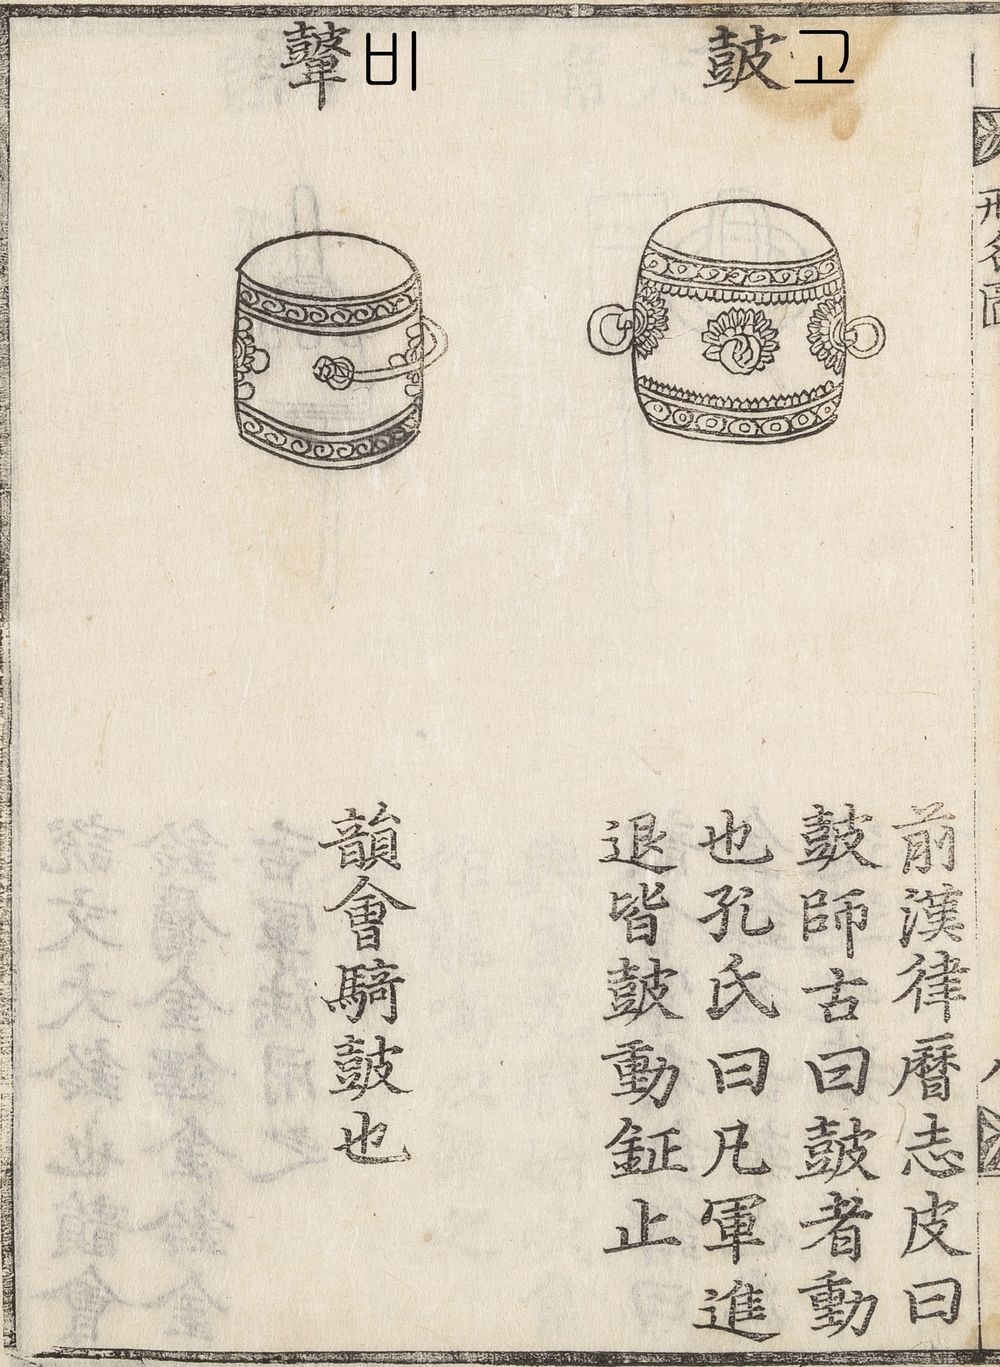 皷고
前漢律曆志皮曰
皷師古曰皷者動
也孔氏曰凡軍進
退皆皷動鉦止
鼙비
韻會騎皷也